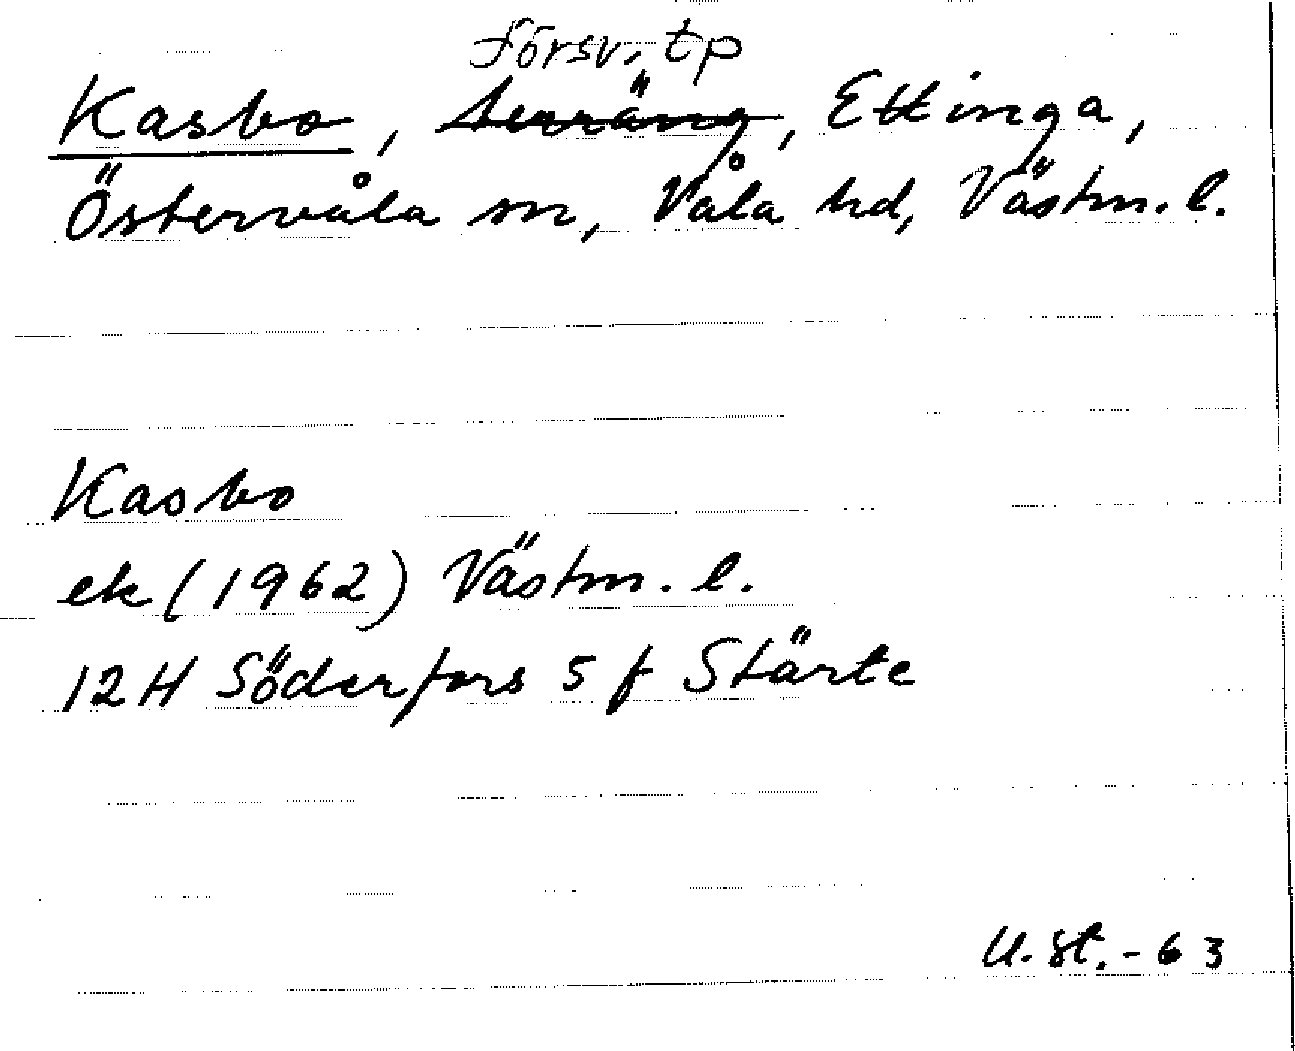 försv. tp
Kasbo, terräng, Ettinga,
Östervåla sn, Våla hd, Västm. l.
Kasbo
ek (1962) Västm. l.
12H Söderfors 5 f Stärte
U. St. - 63